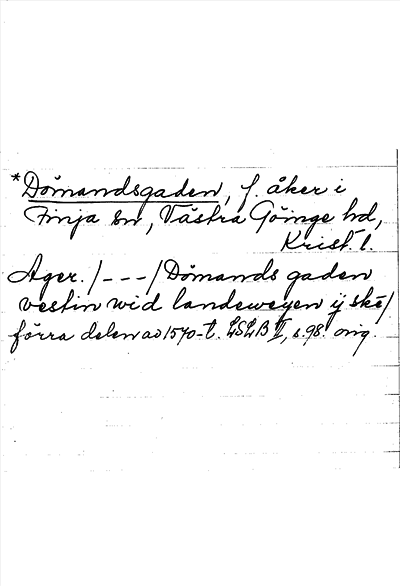 *Dömandsgaden, f. åker i
Finja sn, Västra Göinge hd,
Krist. l.
Ager. /---/ Dömands gaden
vestin wid landeweyen ij ske/
förra delen av 1570-t. LSLB II, s. 98. orig.